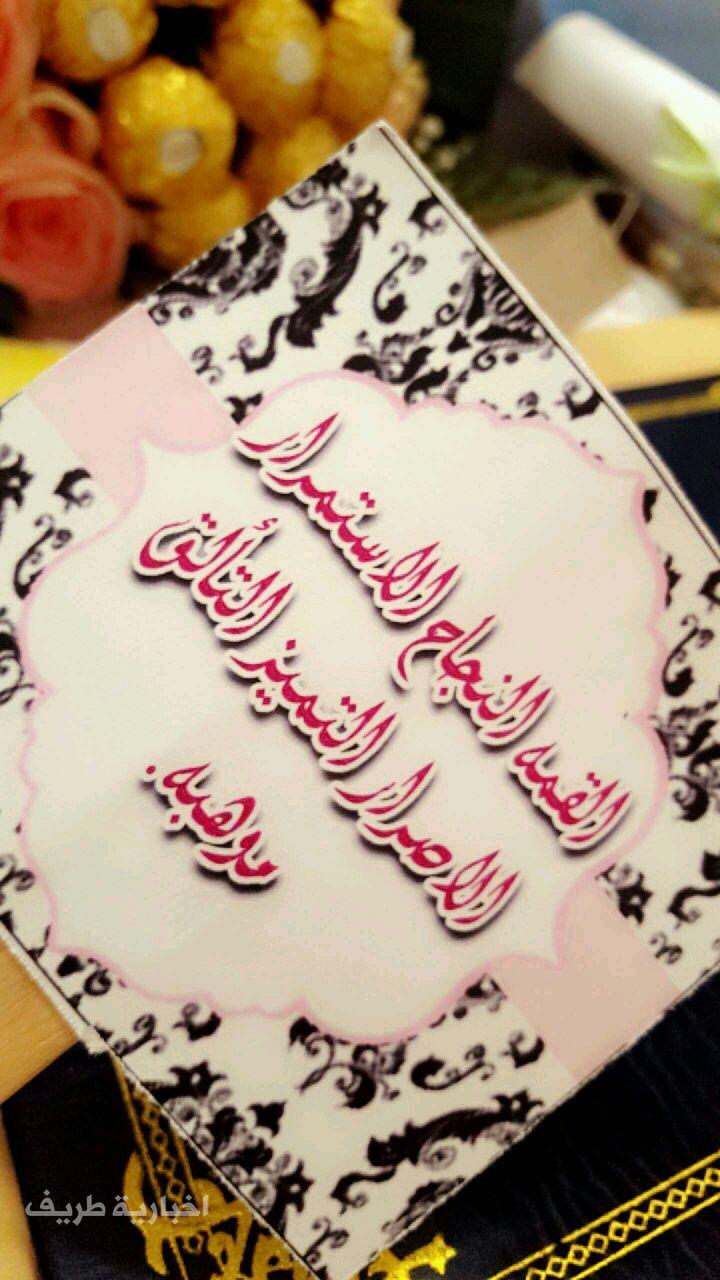 القمه النجاح الاستمرار
الاصرار التميز التألق
موهبه.
اخبارية طريف